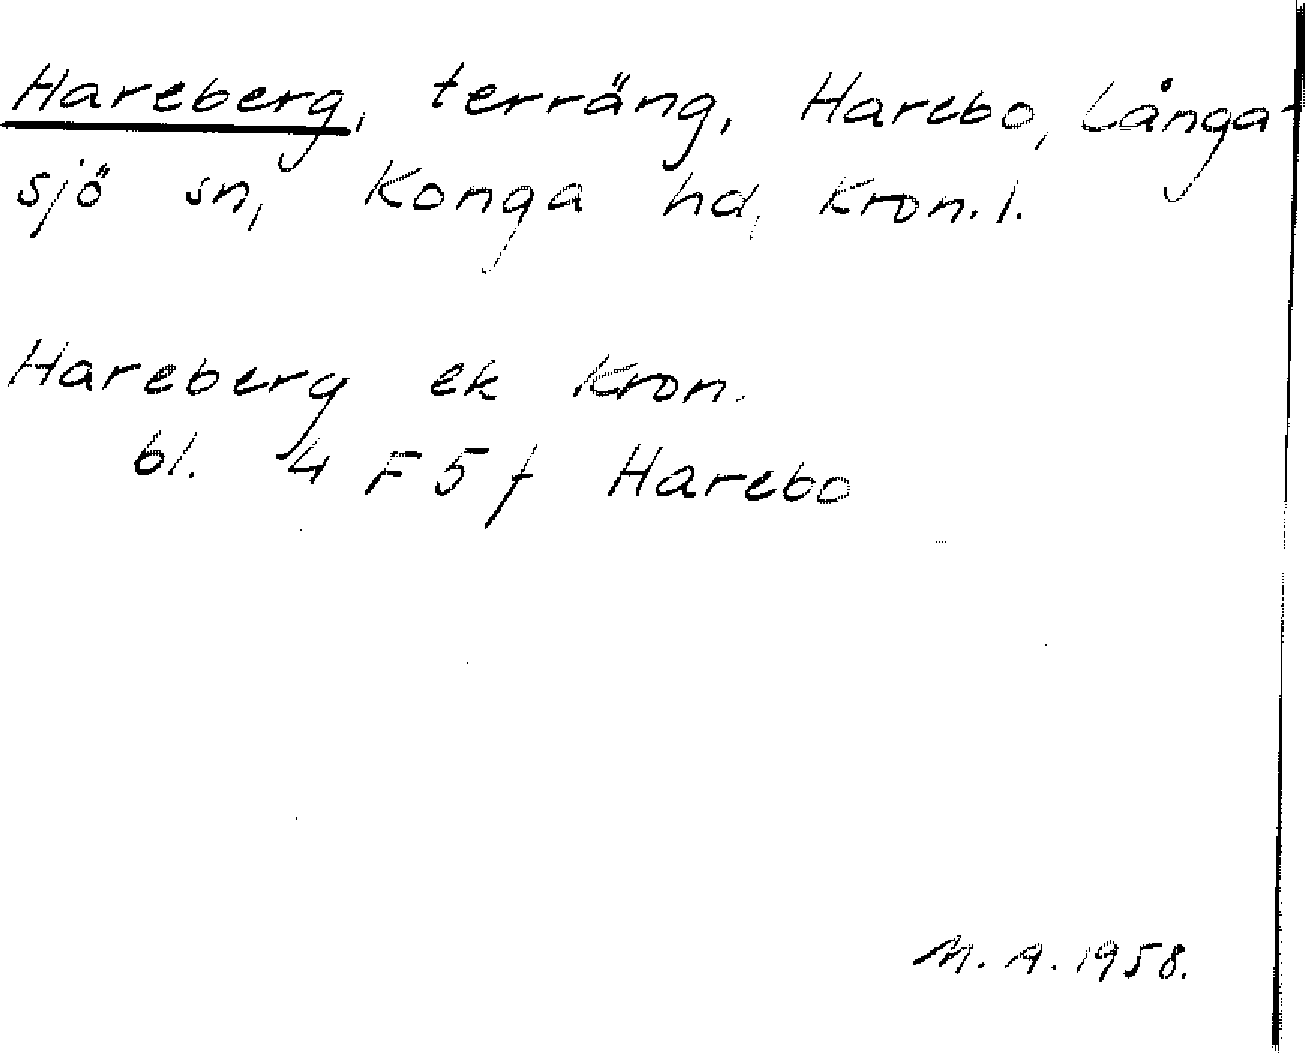 Hareberg, terräng, Harebo, Långa-
sjö sn, Konga hd, Kron. l.
Hareberg ek Kron.
bl. 4 F 5 f Harebo
M. A. 1958.